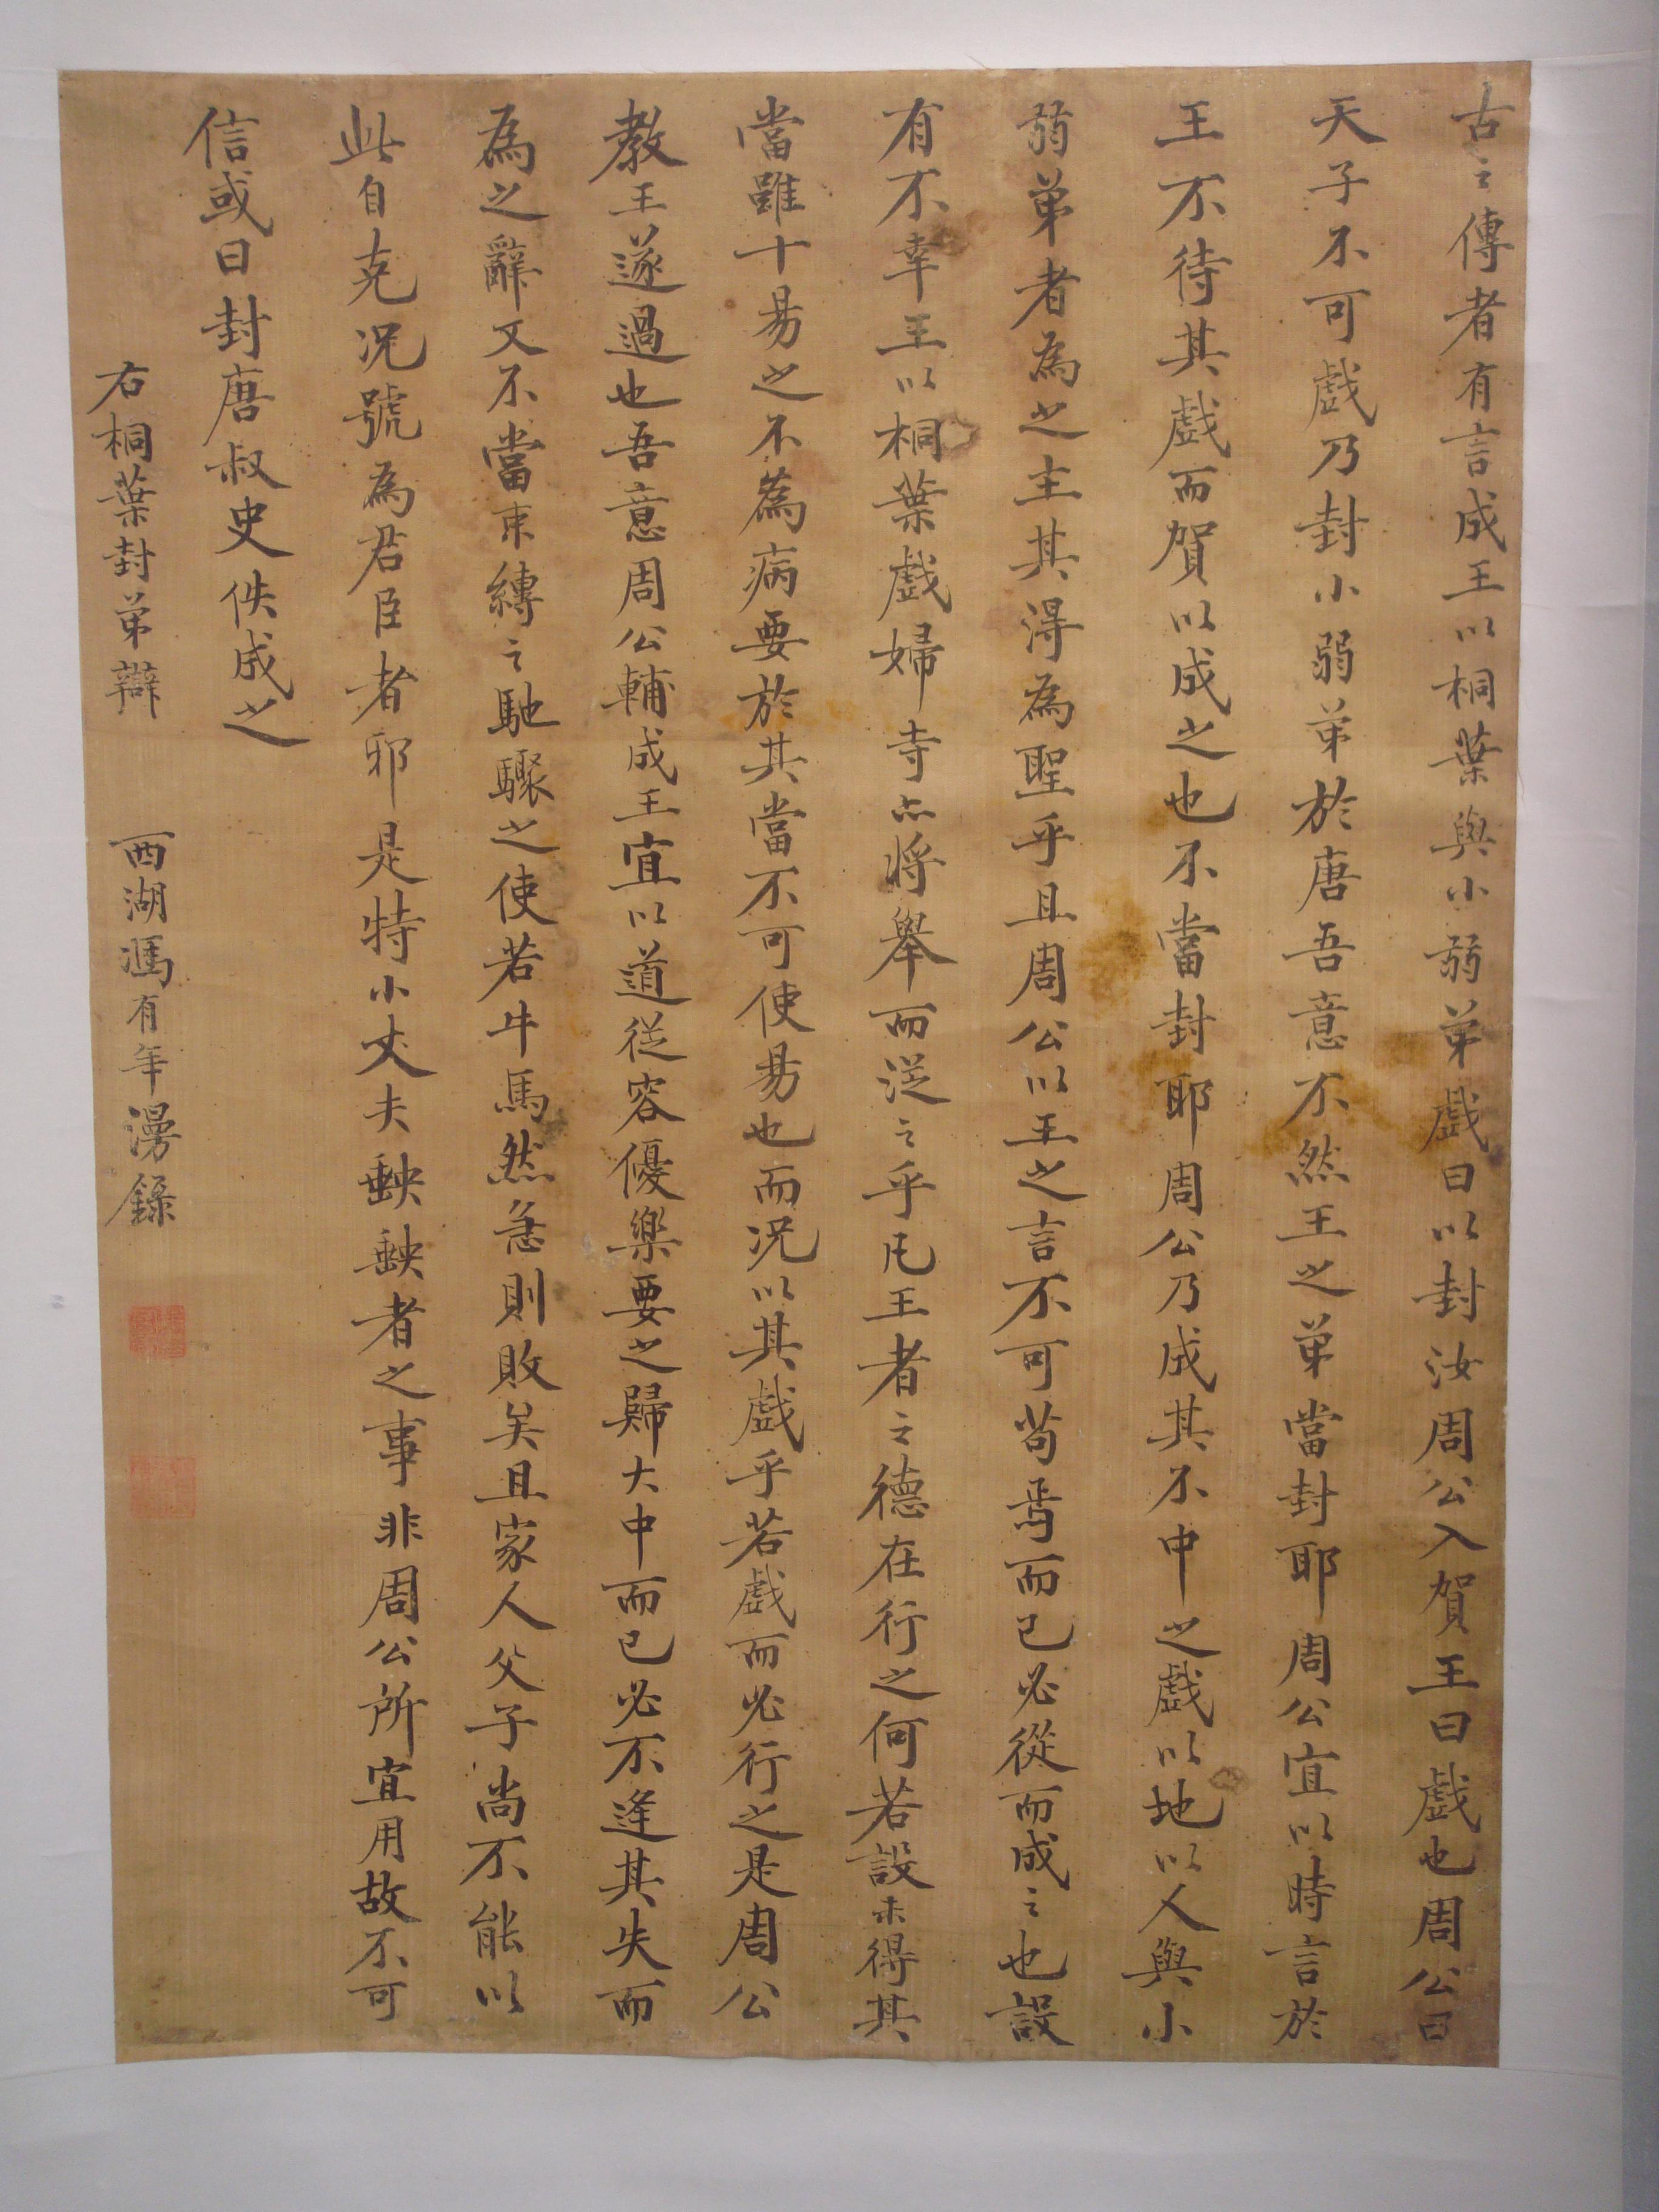 古之傳者有言成王以桐葉與小弱弟戲曰以封汝周公入賀王曰戲也周公曰
天子不可戲乃封小弱弟於唐吾意不然王之弟當封耶周公宜以時言於
王不待其戲而賀以成之也不當封耶周公乃成其不中之戲以地以人與小
弱弟者為之主其得為聖乎且周公以王之言不可苟焉而已必從而成之也設
有不幸王以桐葉戲婦寺亦將舉而從之乎凡王者之德在行之何若設未得其
當雖十易之不為病要於其當不可使易也而況以其戲乎若戲而必行之是周公
教王遂過也吾意周公輔成王宜以道從容優樂要之歸大中而已必不逢其失而
為之辭又不當束縛之馳驟之使若牛馬然急則敗矣且家人父子尚不能以
此自克況號為君臣者邪是特小丈夫䩢䩢者之事非周公所宜用故不可
信或曰封唐叔史佚成之
右桐葉封弟辯 西湖馮有年漫錄